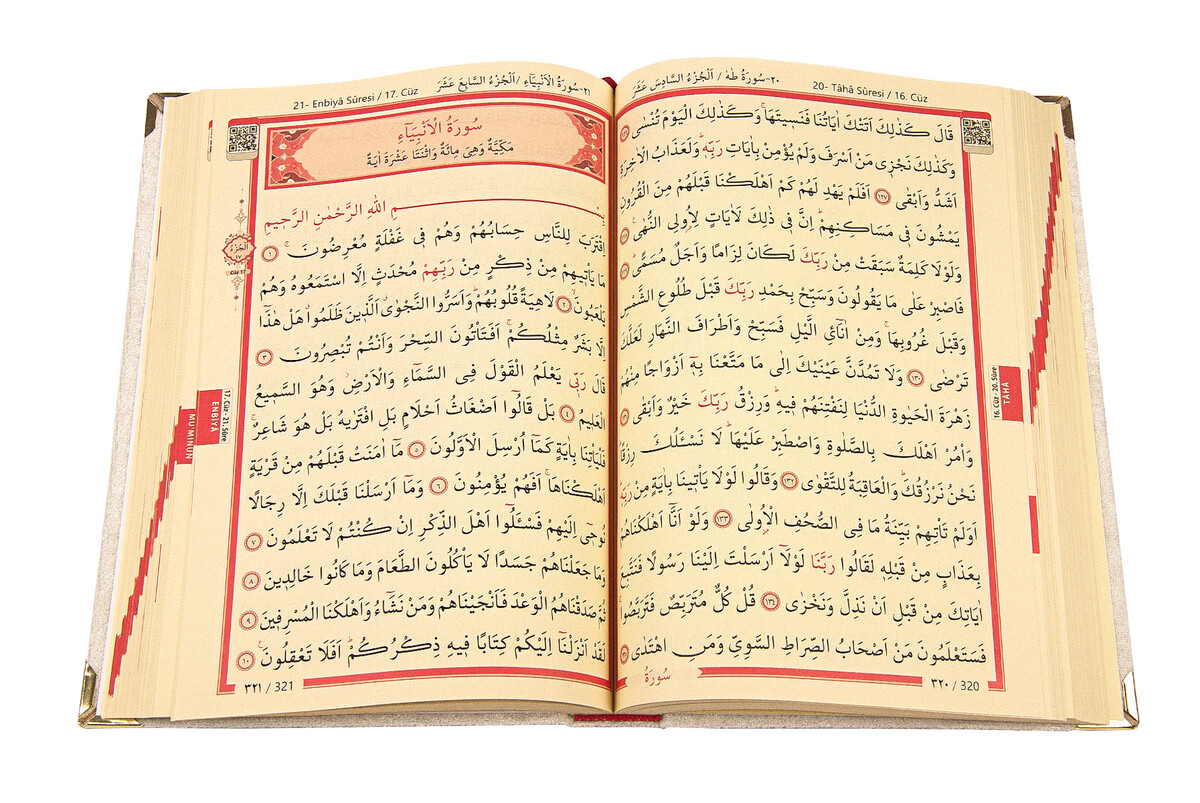 ٢٠-سُورَةُ طٰهٰ / اَلْجُزْءُ السَّادِسَ عَشَرَ
20- Tâhâ Sûresi / 16. Cüz
قَالَ كَذٰلِكَ اَتَتْكَ اٰيَاتُنَا فَنَسِيتَهَاۚ وَكَذٰلِكَ الْيَوْمَ تُنْسٰى ﴿١٢٦﴾
وَكَذٰلِكَ نَجْزٖي مَنْ اَسْرَفَ وَلَمْ يُؤْمِنْ بِاٰيَاتِ رَبِّهٖۜ وَلَعَذَابُ الْاٰخِرَةِ
اَشَدُّ وَاَبْقٰى ﴿١٢٧﴾ اَفَلَمْ يَهْدِ لَهُمْ كَمْ اَهْلَكْنَا قَبْلَهُمْ مِنَ الْقُرُونِ
يَمْشُونَ فٖي مَسَاكِنِهِمْۜ اِنَّ فٖي ذٰلِكَ لَاٰيَاتٍ لِاُو۬لِي النُّهٰى ﴿١٢٨﴾
وَلَوْلَا كَلِمَةٌ سَبَقَتْ مِنْ رَبِّكَ لَكَانَ لِزَامًا وَاَجَلٌ مُسَمًّى ﴿١٢٩﴾
فَاصْبِرْ عَلٰى مَا يَقُولُونَ وَسَبِّحْ بِحَمْدِ رَبِّكَ قَبْلَ طُلُوعِ الشَّمْسِ
وَقَبْلَ غُرُوبِهَاۚ وَمِنْ اٰنَآئِ الَّيْلِ فَسَبِّحْ وَاَطْرَافَ النَّهَارِ لَعَلَّكَ
تَرْضٰى ﴿١٣٠﴾ وَلَا تَمُدَّنَّ عَيْنَيْكَ اِلٰى مَا مَتَّعْنَا بِهٖٓ اَزْوَاجًا مِنْهُمْ
زَهْرَةَ الْحَيٰوةِ الدُّنْيَا لِنَفْتِنَهُمْ فٖيهِۜ وَرِزْقُ رَبِّكَ خَيْرٌ وَاَبْقٰى ﴿١٣١﴾
وَأْمُرْ اَهْلَكَ بِالصَّلٰوةِ وَاصْطَبِرْ عَلَيْهَاۜ لَا نَسْـَٔلُكَ رِزْقًاۜ
نَحْنُ نَرْزُقُكَۜ وَالْعَاقِبَةُ لِلتَّقْوٰى ﴿١٣٢﴾ وَقَالُوا لَوْلَا يَأْتٖينَا بِاٰيَةٍ مِنْ رَبِّهٖۜ
اَوَلَمْ تَأْتِهِمْ بَيِّنَةُ مَا فِي الصُّحُفِ الْاُو۫لٰى ﴿١٣٣﴾ وَلَوْ اَنَّٓا اَهْلَكْنَاهُمْ
بِعَذَابٍ مِنْ قَبْلِهٖ لَقَالُوا رَبَّنَا لَوْلَٓا اَرْسَلْتَ اِلَيْنَا رَسُولًا فَنَتَّبِعَ
اٰيَاتِكَ مِنْ قَبْلِ اَنْ نَذِلَّ وَنَخْزٰى ﴿١٣٤﴾ قُلْ كُلٌّ مُتَرَبِّصٌ فَتَرَبَّصُواۚ
فَسَتَعْلَمُونَ مَنْ اَصْحَابُ الصِّرَاطِ السَّوِيِّ وَمَنِ اهْتَدٰى ﴿١٣٥﴾
سُورَةُ
٣٢٠ / 320
16. Cüz - 20. Sûre
TÂHÂ
٢١-سُورَةُ الْاَنْبِيَٓاءِ / اَلْجُزْءُ السَّابِعَ عَشَرَ
21- Enbiyâ Sûresi / 17. Cüz
سُورَةُ الْاَنْبِيَٓاءِ
مَكِّيَّةٌ وَهِيَ مِائَةٌ وَاثْنَتَا عَشْرَةَ اٰيَةً
بِسْمِ اللّٰهِ الرَّحْمٰنِ الرَّحٖيمِ
اِقْتَرَبَ لِلنَّاسِ حِسَابُهُمْ وَهُمْ فٖي غَفْلَةٍ مُعْرِضُونَۚ ﴿١﴾
مَا يَأْتٖيهِمْ مِنْ ذِكْرٍ مِنْ رَبِّهِمْ مُحْدَثٍ اِلَّا اسْتَمَعُوهُ وَهُمْ
يَلْعَبُونَۙ ﴿٢﴾ لَاهِيَةً قُلُوبُهُمْۜ وَاَسَرُّوا النَّجْوٰىۗ اَلَّذٖينَ ظَلَمُواۗ هَلْ هٰذَٓا
اِلَّا بَشَرٌ مِثْلُكُمْۚ اَفَتَأْتُونَ السِّحْرَ وَاَنْتُمْ تُبْصِرُونَ ﴿٣﴾
قَالَ رَبّٖي يَعْلَمُ الْقَوْلَ فِي السَّمَٓاءِ وَالْاَرْضِۘ وَهُوَ السَّمٖيعُ
الْعَلٖيمُ ﴿٤﴾ بَلْ قَالُٓوا اَضْغَاثُ اَحْلَامٍ بَلِ افْتَرٰيهُ بَلْ هُوَ شَاعِرٌۚ
فَلْيَأْتِنَا بِاٰيَةٍ كَمَٓا اُرْسِلَ الْاَوَّلُونَ ﴿٥﴾ مَٓا اٰمَنَتْ قَبْلَهُمْ مِنْ قَرْيَةٍ
اَهْلَكْنَاهَاۚ اَفَهُمْ يُؤْمِنُونَ ﴿٦﴾ وَمَٓا اَرْسَلْنَا قَبْلَكَ اِلَّا رِجَالًا
نُوحٖٓي اِلَيْهِمْ فَسْـَٔلُٓوا اَهْلَ الذِّكْرِ اِنْ كُنْتُمْ لَا تَعْلَمُونَ ﴿٧﴾
وَمَا جَعَلْنَاهُمْ جَسَدًا لَا يَأْكُلُونَ الطَّعَامَ وَمَا كَانُوا خَالِدٖينَ ﴿٨﴾
ثُمَّ صَدَقْنَاهُمُ الْوَعْدَ فَاَنْجَيْنَاهُمْ وَمَنْ نَشَٓاءُ وَاَهْلَكْنَا الْمُسْرِفٖينَ ﴿٩﴾
لَقَدْ اَنْزَلْنَٓا اِلَيْكُمْ كِتَابًا فٖيهِ ذِكْرُكُمْۜ اَفَلَا تَعْقِلُونَ۟ ﴿١٠﴾
٣٢١ / 321
اَلْجُزْءُ
١٧
Cüz 17
17. Cüz - 21. Sûre
ENBİYÂ
MU'MİNÛN